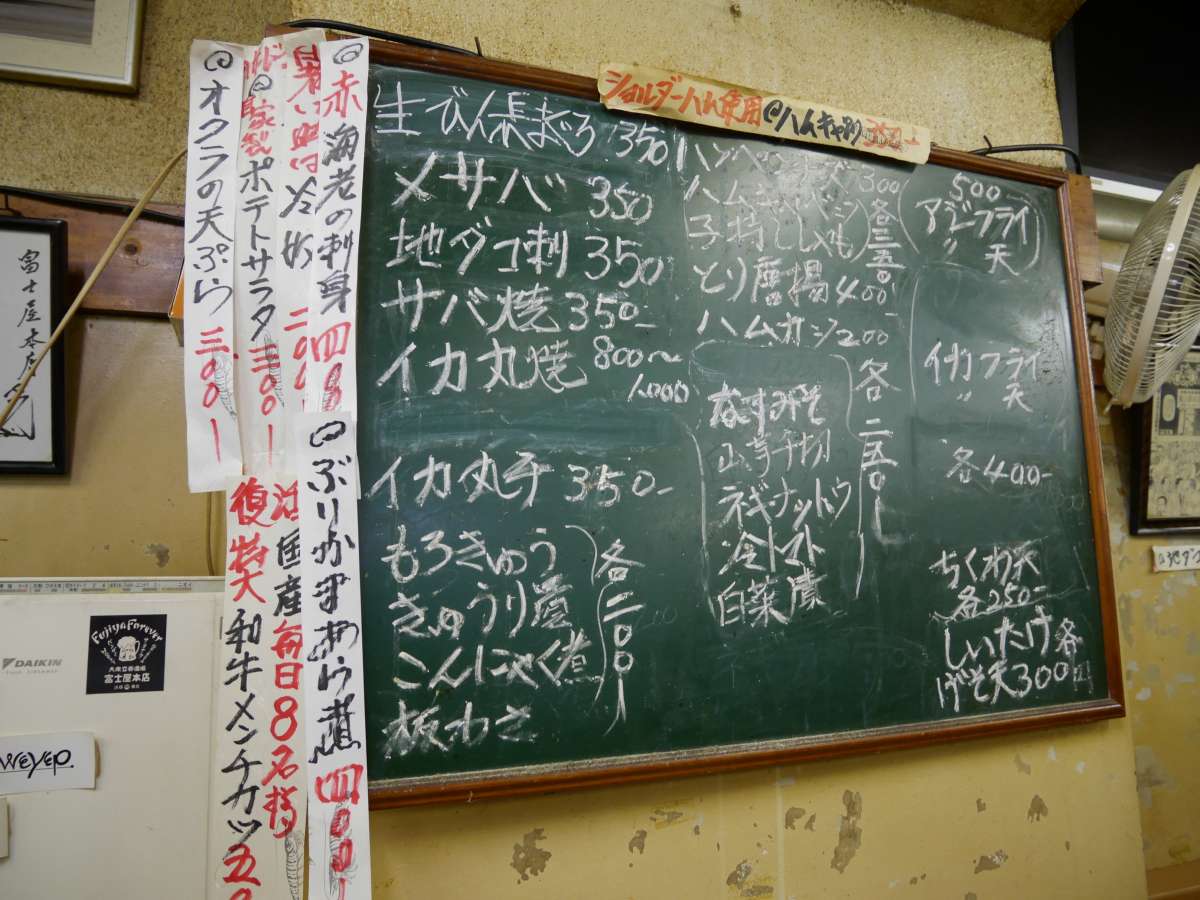 生びん長まぐろ 350
メサバ 350
地ダコ刺 350
サバ焼 350-
イカ丸焼 800〜
1000
イカ丸干 350-
もろきゅう
きゅうり漬
こんにゃく煮
板わさ
各二〇〇-
ショルダーハム使用 @ハムキャベツ
300
子持ししゃも
各三五〇
とり唐揚 400-
ハムカツ 200-
なすみそ
山芋千切
ネギナットウ
冷トマト
白菜漬
各二五〇-
500
アジフライ
〃 天
イカフライ
〃 天
各400-
ちくわ天
各250-
しいたけ 各
げそ天 300円
@オクラの天ぷら 三〇〇-
@自家製ポテトサラダ 三〇〇-
暑い時は冷奴 二〇〇
@赤海老の刺身 四〇〇
@ぶりかまあら煮 四〇〇-
国産毎日8名様
復活 和牛メンチカツ 五〇
富士屋本店
DAIKIN
Fujiya Forever
大衆立呑酒場
富士屋本店